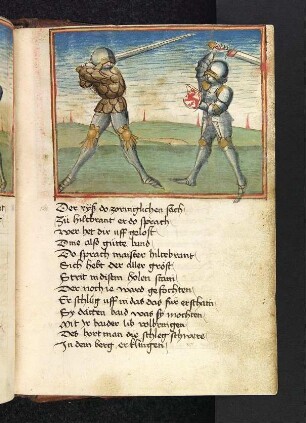 Der ryß do zorniglichen sach
Zu hiltebrant er do sprach
Wer het dir uff gelost
Dine also gutte band
Do sprach maister hiltebrant
Sich hebt der aller gröst
Strit in disem holen stain
Der noch ie ward gefochten
Er schlug uff in das das für erschain
Sy datten baid was sy mochten
Mit ir baider lib
Des hort man die schleg schwere
In dem berg erklingen